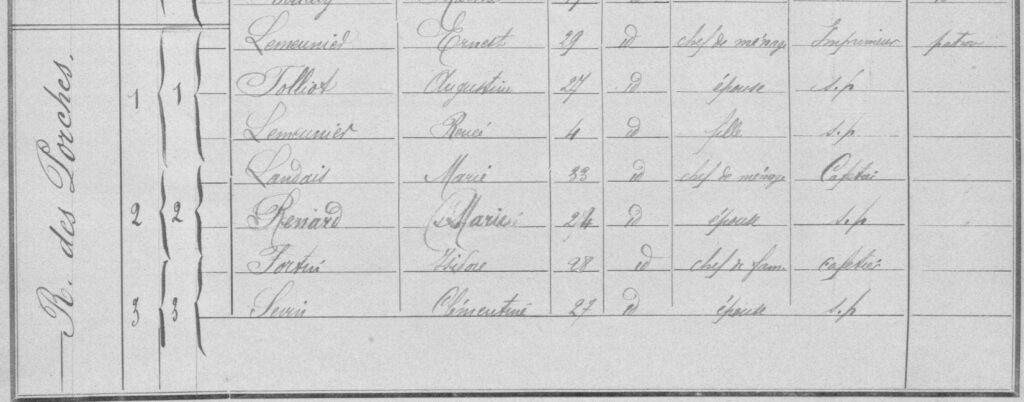 R. des Porches.
1 1 Lemeunier Ernest 29 id chef de ménage Imprimeur patron
Tolliot Augustine 27 id épouse s.p
Lemeunier Renée 4 id fille s.p
Landais Marie 33 id chef de ménage Cafetier
2 2 Renard Marie 24 id épouse s.p
Fortin Isidore 28 id chef de cafetier
3 3 Sevin Clémentine 27 id épouse s.p